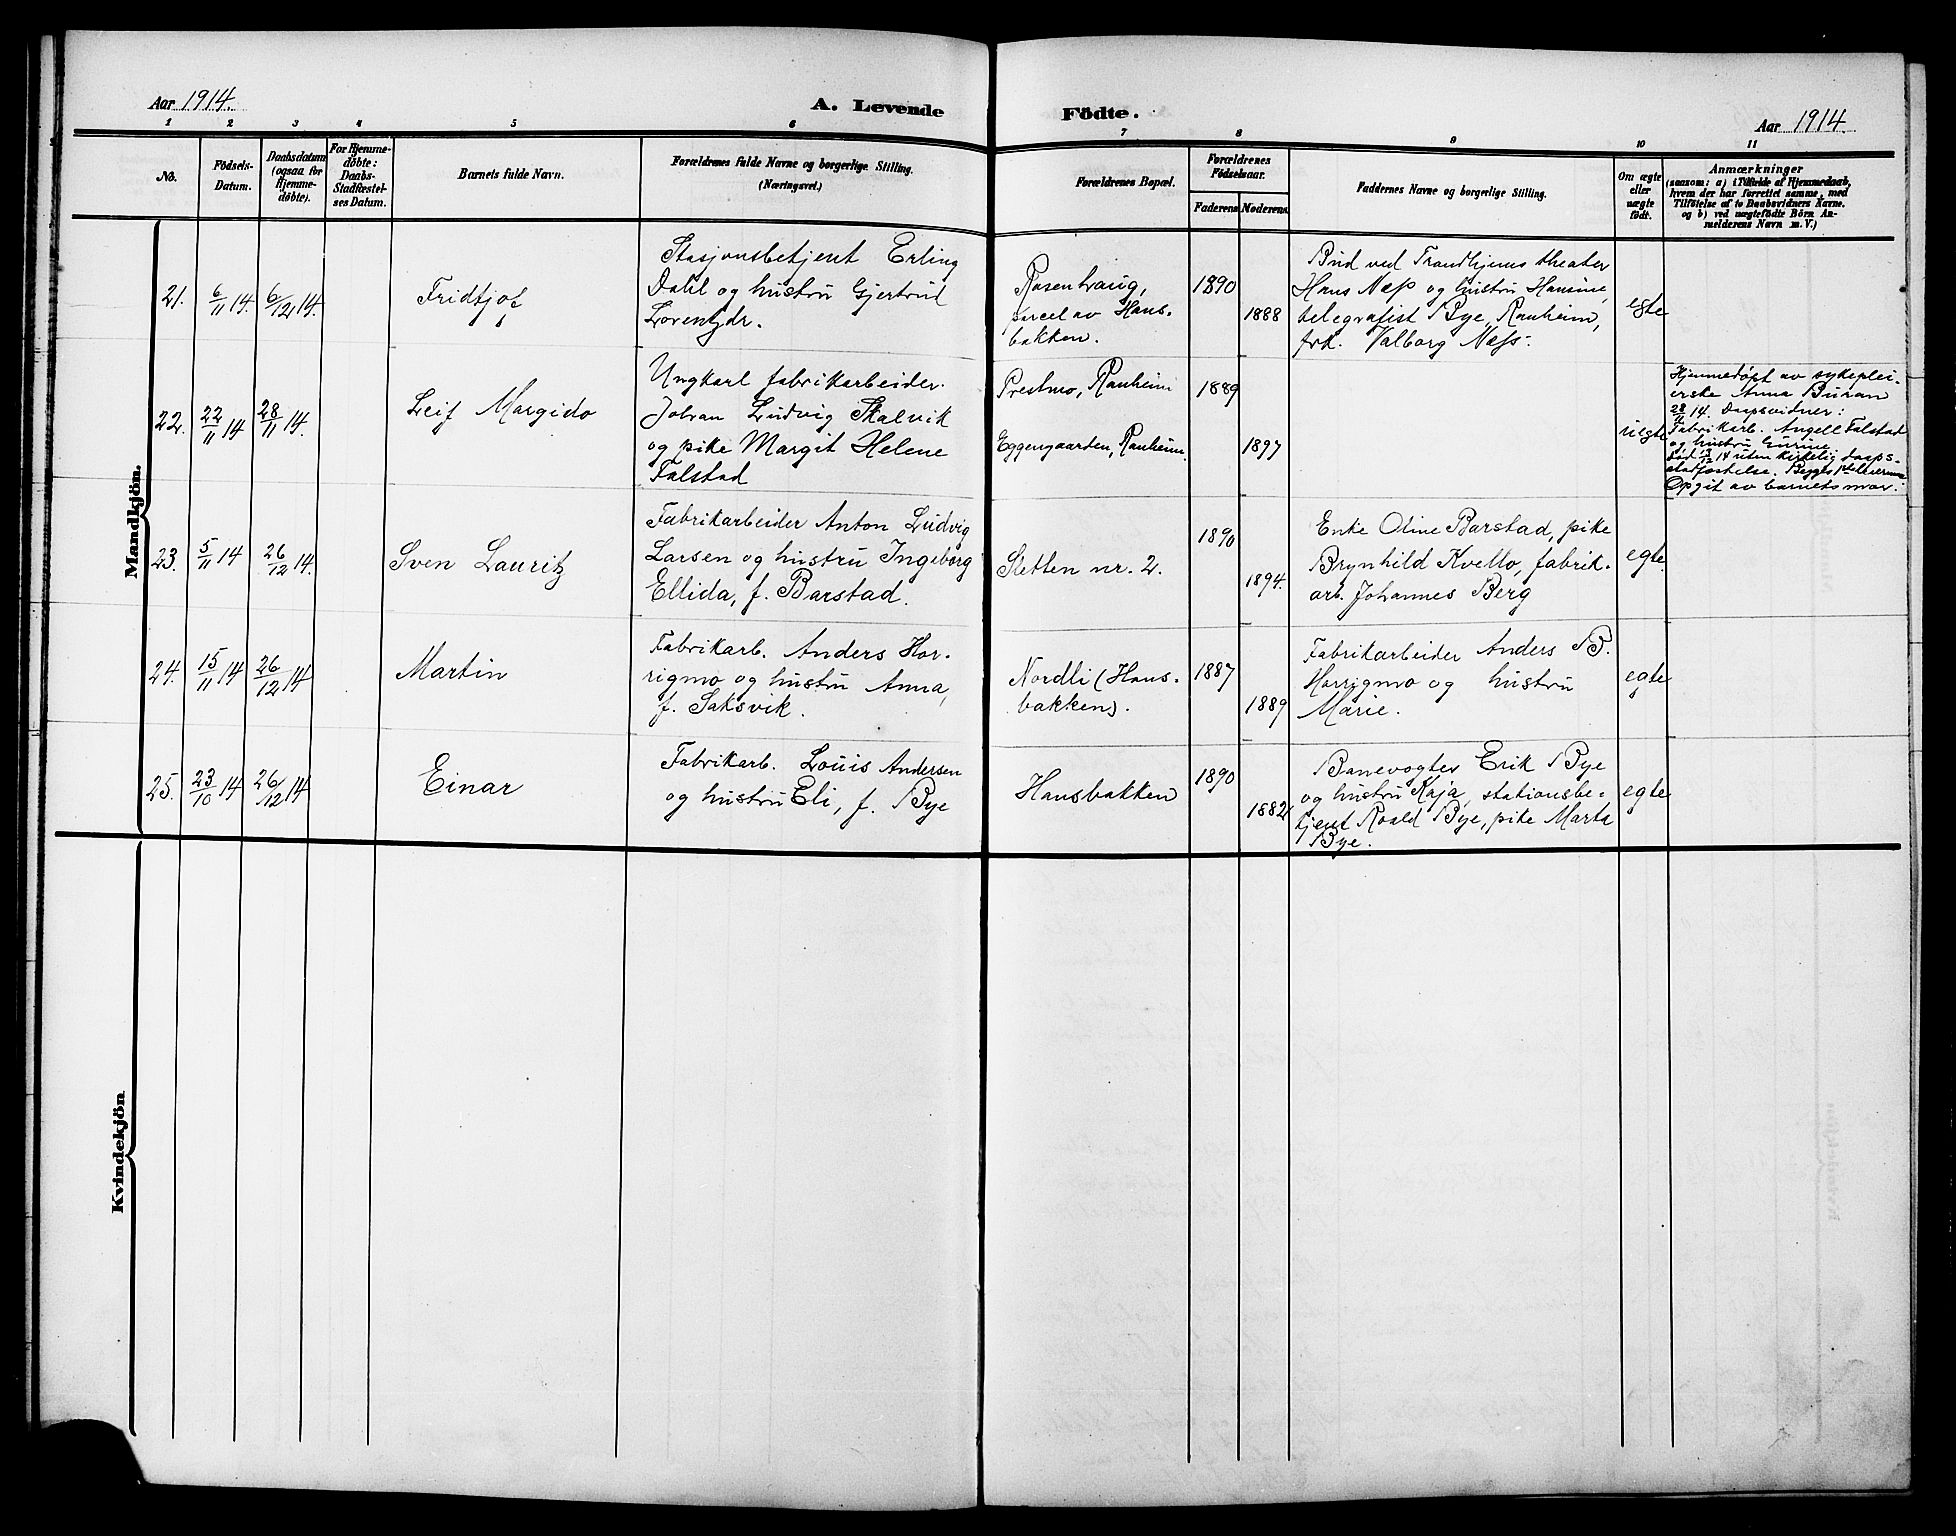 Aar 1914.
A. Levende
Födte.
Aar 1914.
1 2 3 4 5 6
7 8 9 10 11
No.
Födsels-
Datum.
Daabsdatum
(ogsaa for
Hjemme-
döbte).
For Hjemme-
döbte:
Daabs-
Stadfæstel-
ses Datum.
Barnets fulde Navn.
Forældrenes fulde Navne og borgerlige Stilling.
(Næringsvei.)
Forældrenes Bopæl.
Forældrenes
Födselsaar.
Faderens Moderens
Faddernes Navne og borgerlige Stilling.
Om ægte
eller
uægte
födt.
Anmærkninger
(saasom: a) i Tilfælde af Hjemmedaab,
hvem der har forrettet samme, med
Tilföielse af to Daabsvidners Navne,
og b) ved uægtefödte Börn An-
melderens Navn m. V.)
Mandkjön.
21.
6/11 14.
6/12 14.
Fridtjof
Stasjonsbetjent Erling
Dahl og hustru Gjertrud
Lorentzdr.
Rosenhaug,
parcel av Hans-
bakken.
1890
1888
Bud ved Trondhjems theater
Hans Næss og hustru Hansine,
telegrafist Bye, Ranheim,
frk. Valborg Næss.
egte
22.
22/11 14
28/11 14.
Leif Margido
Ungkarl fabrikarbeider
Johan Ludvig Skalvik
og pike Margit Helene
Falstad
Prestmo, Ranheim
Eggengaarden, Ranheim.
1889
1897
uegte
Hjemmedøpt av sykeplei-
erske Anna Buran
28/11 14. Daapsvidner:
Fabrikarb. Angell Falstad
og hustru Gurine
død 13/12 14 uten kirkelig daaps-
stadfæstelse. Begges 1ste leierm.
Opgit av barnets mor.
23.
5/11 14
26/12 14.
Sven Lauritz
Fabrikarbeider Anton Ludvig
Larsen og hustru Ingeborg
Ellida, f. Barstad.
Sletten nr. 2.
1890
1894.
Enke Oline Barstad, pike
Brynhild Kvello, fabrik-
arb. Johannes Berg
egte.
24.
15/11 14
26/12 14
Martin
Fabrikarb. Anders Hor-
rigmo og hustru Anna,
f. Saksvik.
Nordli (Hans-
bakken).
1887
1889
Fabrikarbeider Anders B.
Horrigmo og hustru
Marie.
egte
25.
23/10 14
26/12 14
Einar
Fabrikarb. Louis Andersen
og hustru Eli, f. Bye
Hansbakken
1890
1882
Banevogter Erik Bye
og hustru Kaja, stationsbe-
tjent Roald Bye, pike Marta
Bye.
egte
Kvindekjön